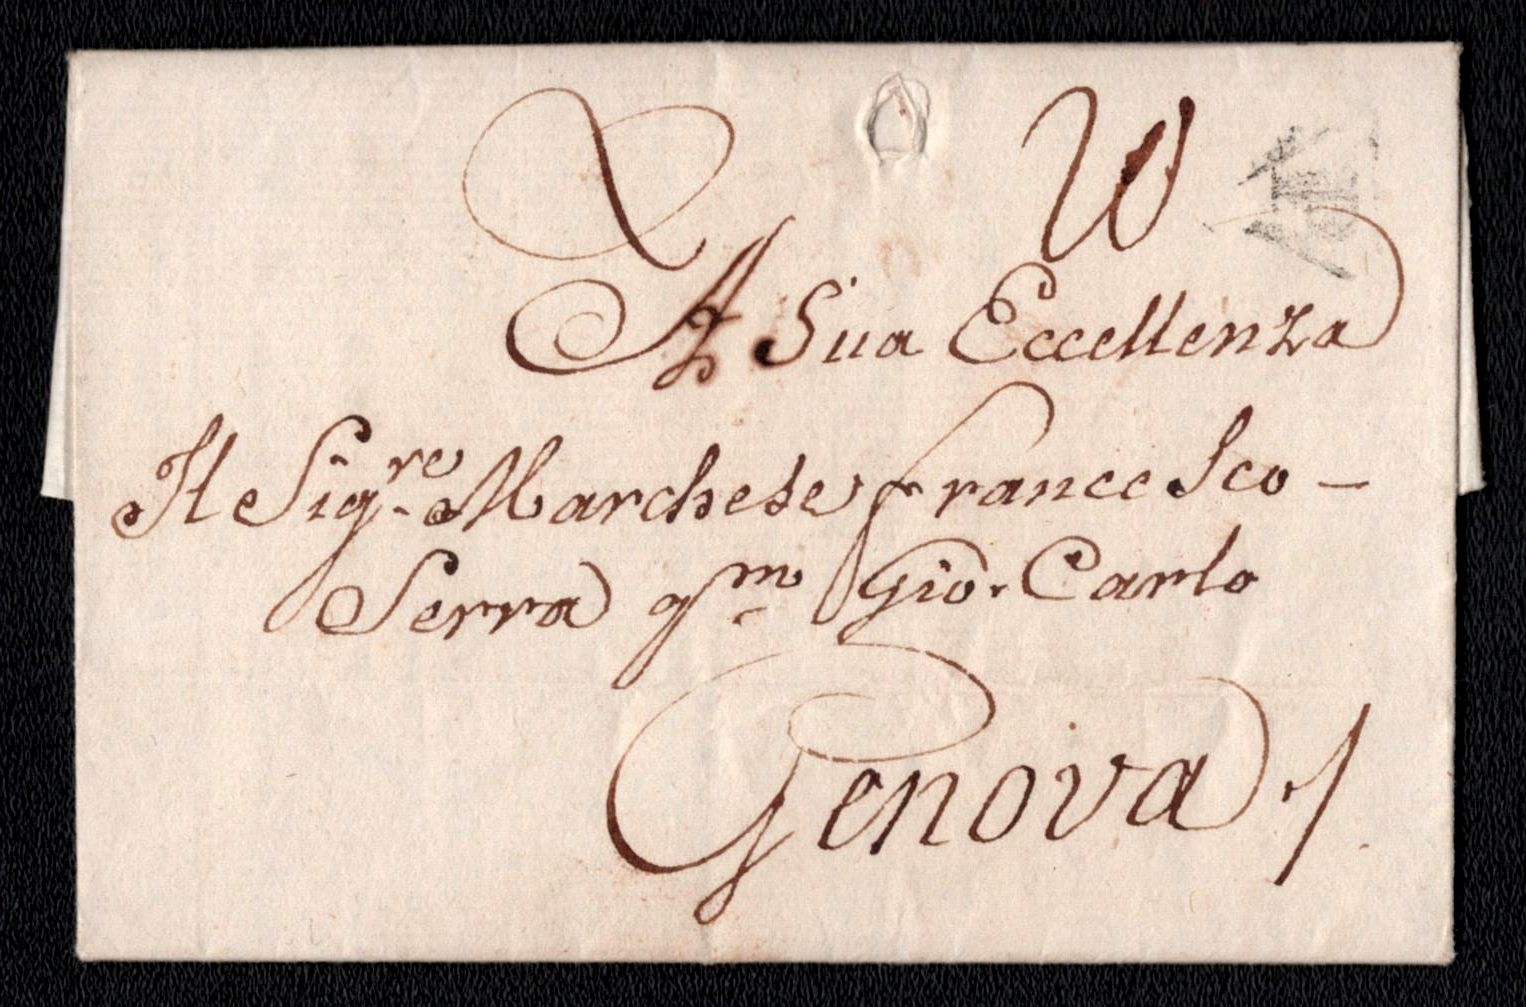 A Sua Eccellenza
Il Sig.re Marchese Francesco -
Serra q.m Gio. Carlo
Genova